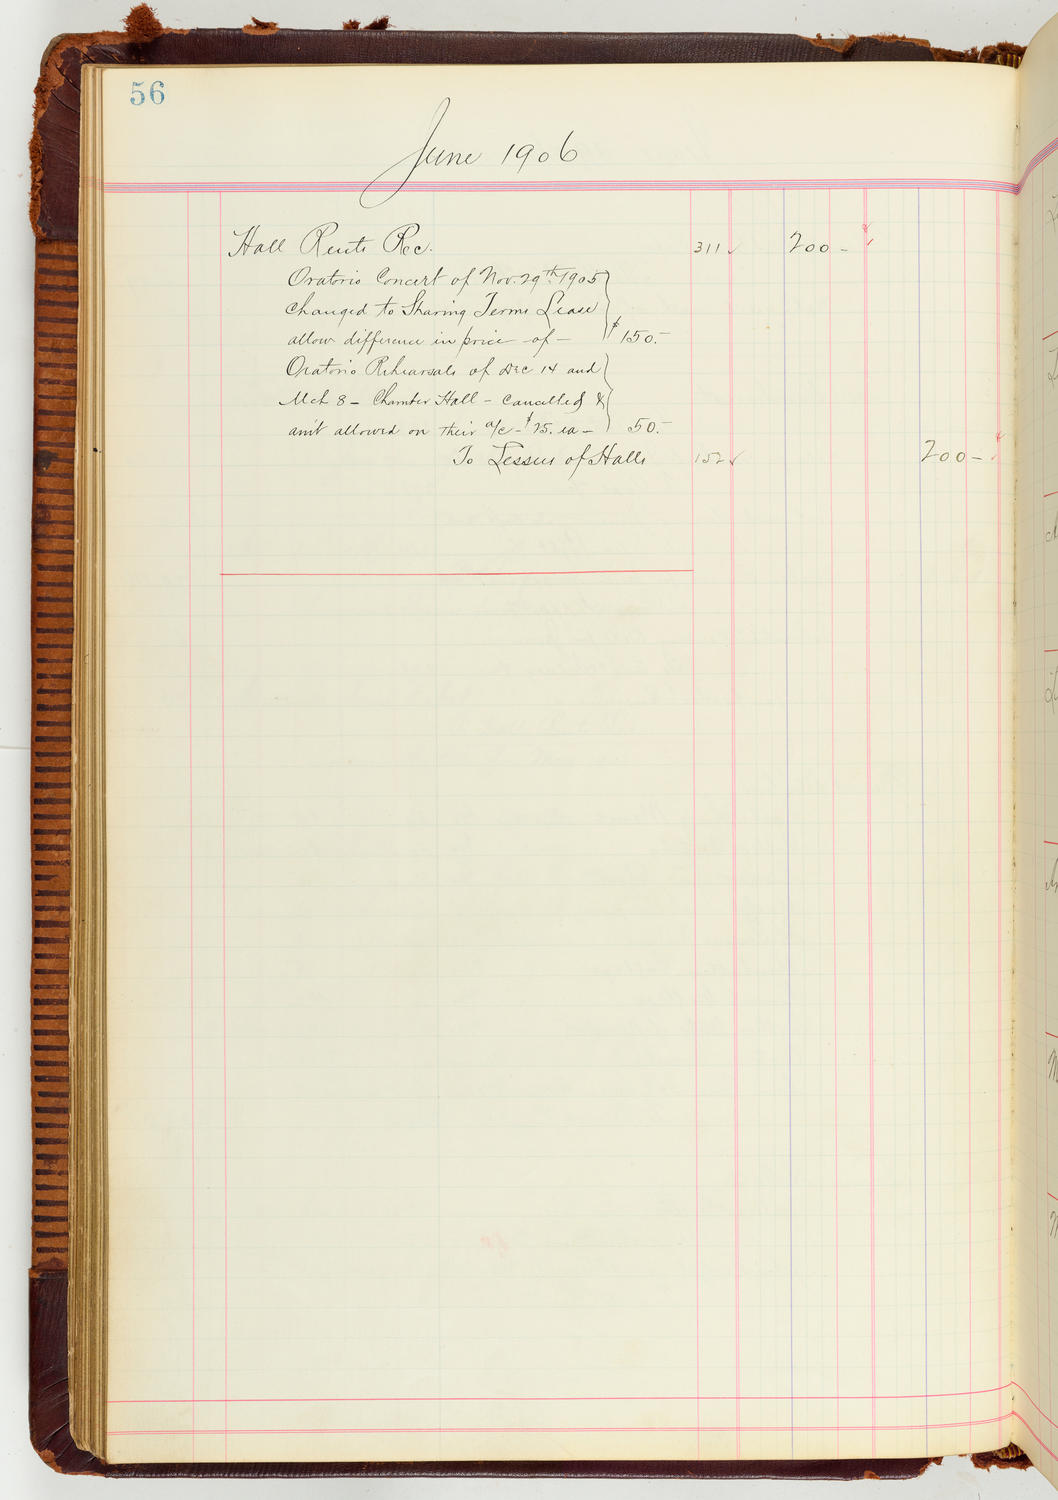 56
June 1906
Hall Rents Rec. 311 ✓ 200 –
Oratorio Concert of Nov. 29th 1905
changed to Sharing Terms Lease
allow difference in price of – $150.–
Oratorio Rehearsals of Dec 14 and
Mch 8 – Chamber Hall – Cancelled &
am't allowed on their a/c – $25. ea – 50.–
To Lessees of Halls 152 ✓ 200 –